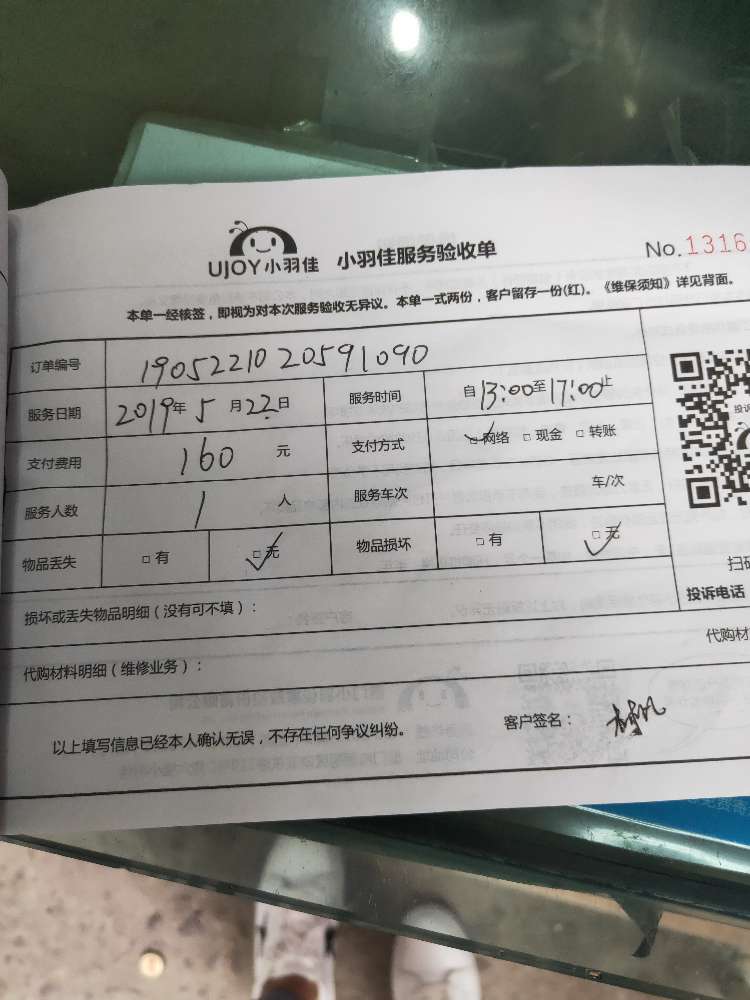 UJOY小羽佳 小羽佳服务验收单 No.1316
本单一经核签，即视为对本次服务验收无异议。本单一式两份，客户留存一份(红)。《维保须知》详见背面。
订单编号 190522102059 1090
服务日期 2019年 5 月 22 日 服务时间 自 13:00 至 17:00 止
支付费用 160 元 支付方式 ☑网络 □现金 □转账
服务人数 1 人 服务车次 车/次
物品丢失 □有 ☑无 物品损坏 □有 ☑无
扫码
投诉电话
损坏或丢失物品明细（没有可不填）：
代购材
代购材料明细（维修业务）：
以上填写信息已经本人确认无误，不存在任何争议纠纷。 客户签名：